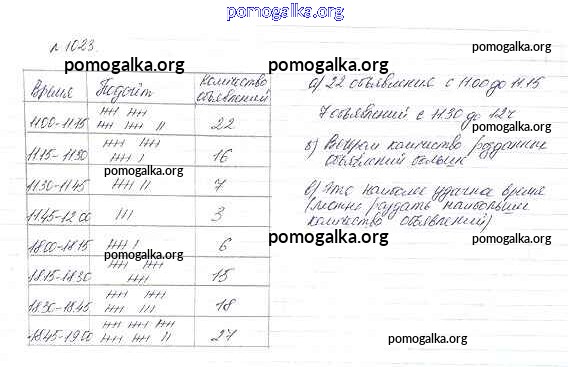 pomogalka.org
№ 1023.
pomogalka.org
pomogalka.org pomogalka.org
Время Подсчёт Количество объявлений
11.00-11.15 𝍸 𝍸 𝍸 𝍸 II 22
11.15-11.30 𝍸 𝍸 𝍸 I 16
11.30-11.45 𝍸 II 7
11.45-12.00 III 3
18.00-18.15 𝍸 I 6
18.15-18.30 𝍸 𝍸 𝍸 15
18.30-18.45 𝍸 𝍸 𝍸 III 18
18.45-19.00 𝍸 𝍸 𝍸 𝍸 𝍸 II 27
а) 22 объявления с 11.00 до 11.15
7 объявлений с 11.30 до
pomogalka.org
количество розданных
объявлений больше
pomogalka.org
в) Это наиболее удачное время
(можно раздать наибольшее
количество объявлений)
pomogalka.org
pomogalka.org
pomogalka.org
pomogalka.org
pomogalka.org